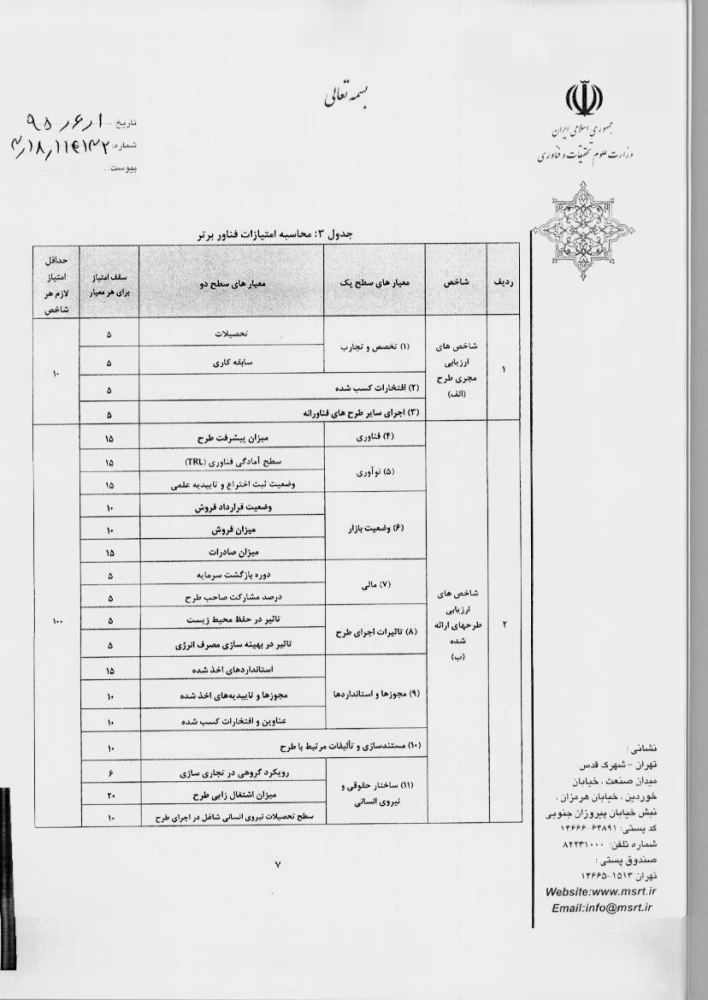 بسمه تعالی
جمهوری اسلامی ایران
وزارت علوم تحقیقات و فناوری
تاریخ:
شماره:
پیوست:
جدول ۳: محاسبه امتیازات فناور برتر
ردیف	شاخص	معیار های سطح یک	معیار های سطح دو	سقف امتیاز برای هر معیار	حداقل امتیاز لازم هر شاخص
۱	شاخص های ارزیابی مجری طرح (الف)	(۱) تخصص و تجارب	تحصیلات	۵	۱۰
سابقه کاری	۵
(۲) افتخارات کسب شده	۵
(۳) اجرای سایر طرح های فناورانه	۵
۲	شاخص های ارزیابی طرحهای ارائه شده (ب)	(۴) فناوری	میزان پیشرفت طرح	۱۵	۱۰۰
(۵) نوآوری	سطح آمادگی فناوری (TRL)	۱۵
وضعیت ثبت اختراع و تاییدیه علمی	۱۵
(۶) وضعیت بازار	وضعیت قرارداد فروش	۱۰
میزان فروش	۱۰
میزان صادرات	۱۵
(۷) مالی	دوره بازگشت سرمایه	۵
درصد مشارکت صاحب طرح	۵
(۸) تاثیرات اجرای طرح	تاثیر در حفظ محیط زیست	۵
تاثیر در بهینه سازی مصرف انرژی	۵
(۹) مجوزها و استانداردها	استانداردهای اخذ شده	۱۵
مجوزها و تاییدیه‌های اخذ شده	۱۰
عناوین و افتخارات کسب شده	۱۰
(۱۰) مستندسازی و تألیفات مرتبط با طرح	۱۰
(۱۱) ساختار حقوقی و نیروی انسانی	رویکرد گروهی در تجاری سازی	۶
میزان اشتغال زایی طرح	۲۰
سطح تحصیلات نیروی انسانی شاغل در اجرای طرح	۱۰
۷
نشانی:
تهران - شهرک قدس
میدان صنعت، خیابان
خوردین، خیابان هرمزان،
نبش خیابان پیروزان جنوبی
کد پستی: ۶۴۸۹۱-۱۴۶۶۶
شماره تلفن: ۸۲۲۳۱۰۰۰
صندوق پستی:
تهران ۱۵۱۳-۱۴۶۶۵
Website:www.msrt.ir
Email:info@msrt.ir